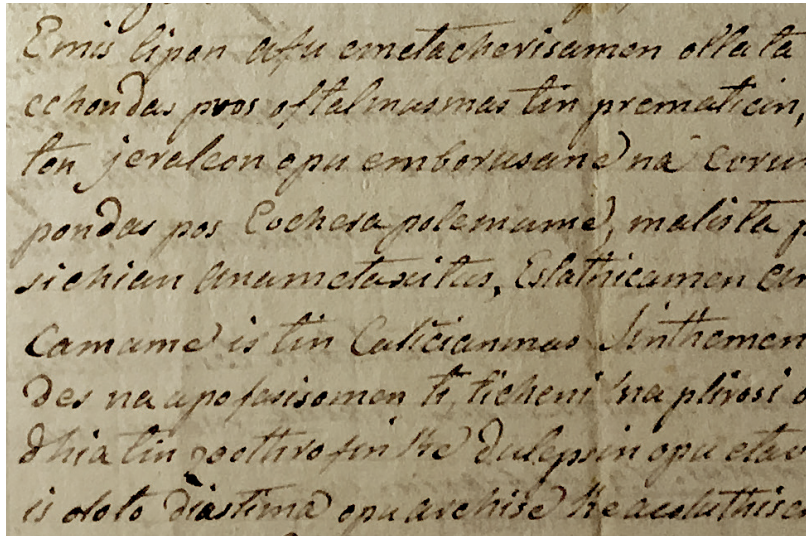 Emis lipon afu emetacherisamen olla ta
echondas pros oftalmusmas tin prematicin,
ton jeraleon opu emborusane na
pondas pos Eochera polemame, malista
sichian anametaxitus, Estathicamen
Camame is tin Caticianmas Sinthemen
des na apofasisomen ti ticheni na plirosi o
dhia tin zoothrofin ke dulepsin opu
is oloto diastima opu archise ke acoluthise